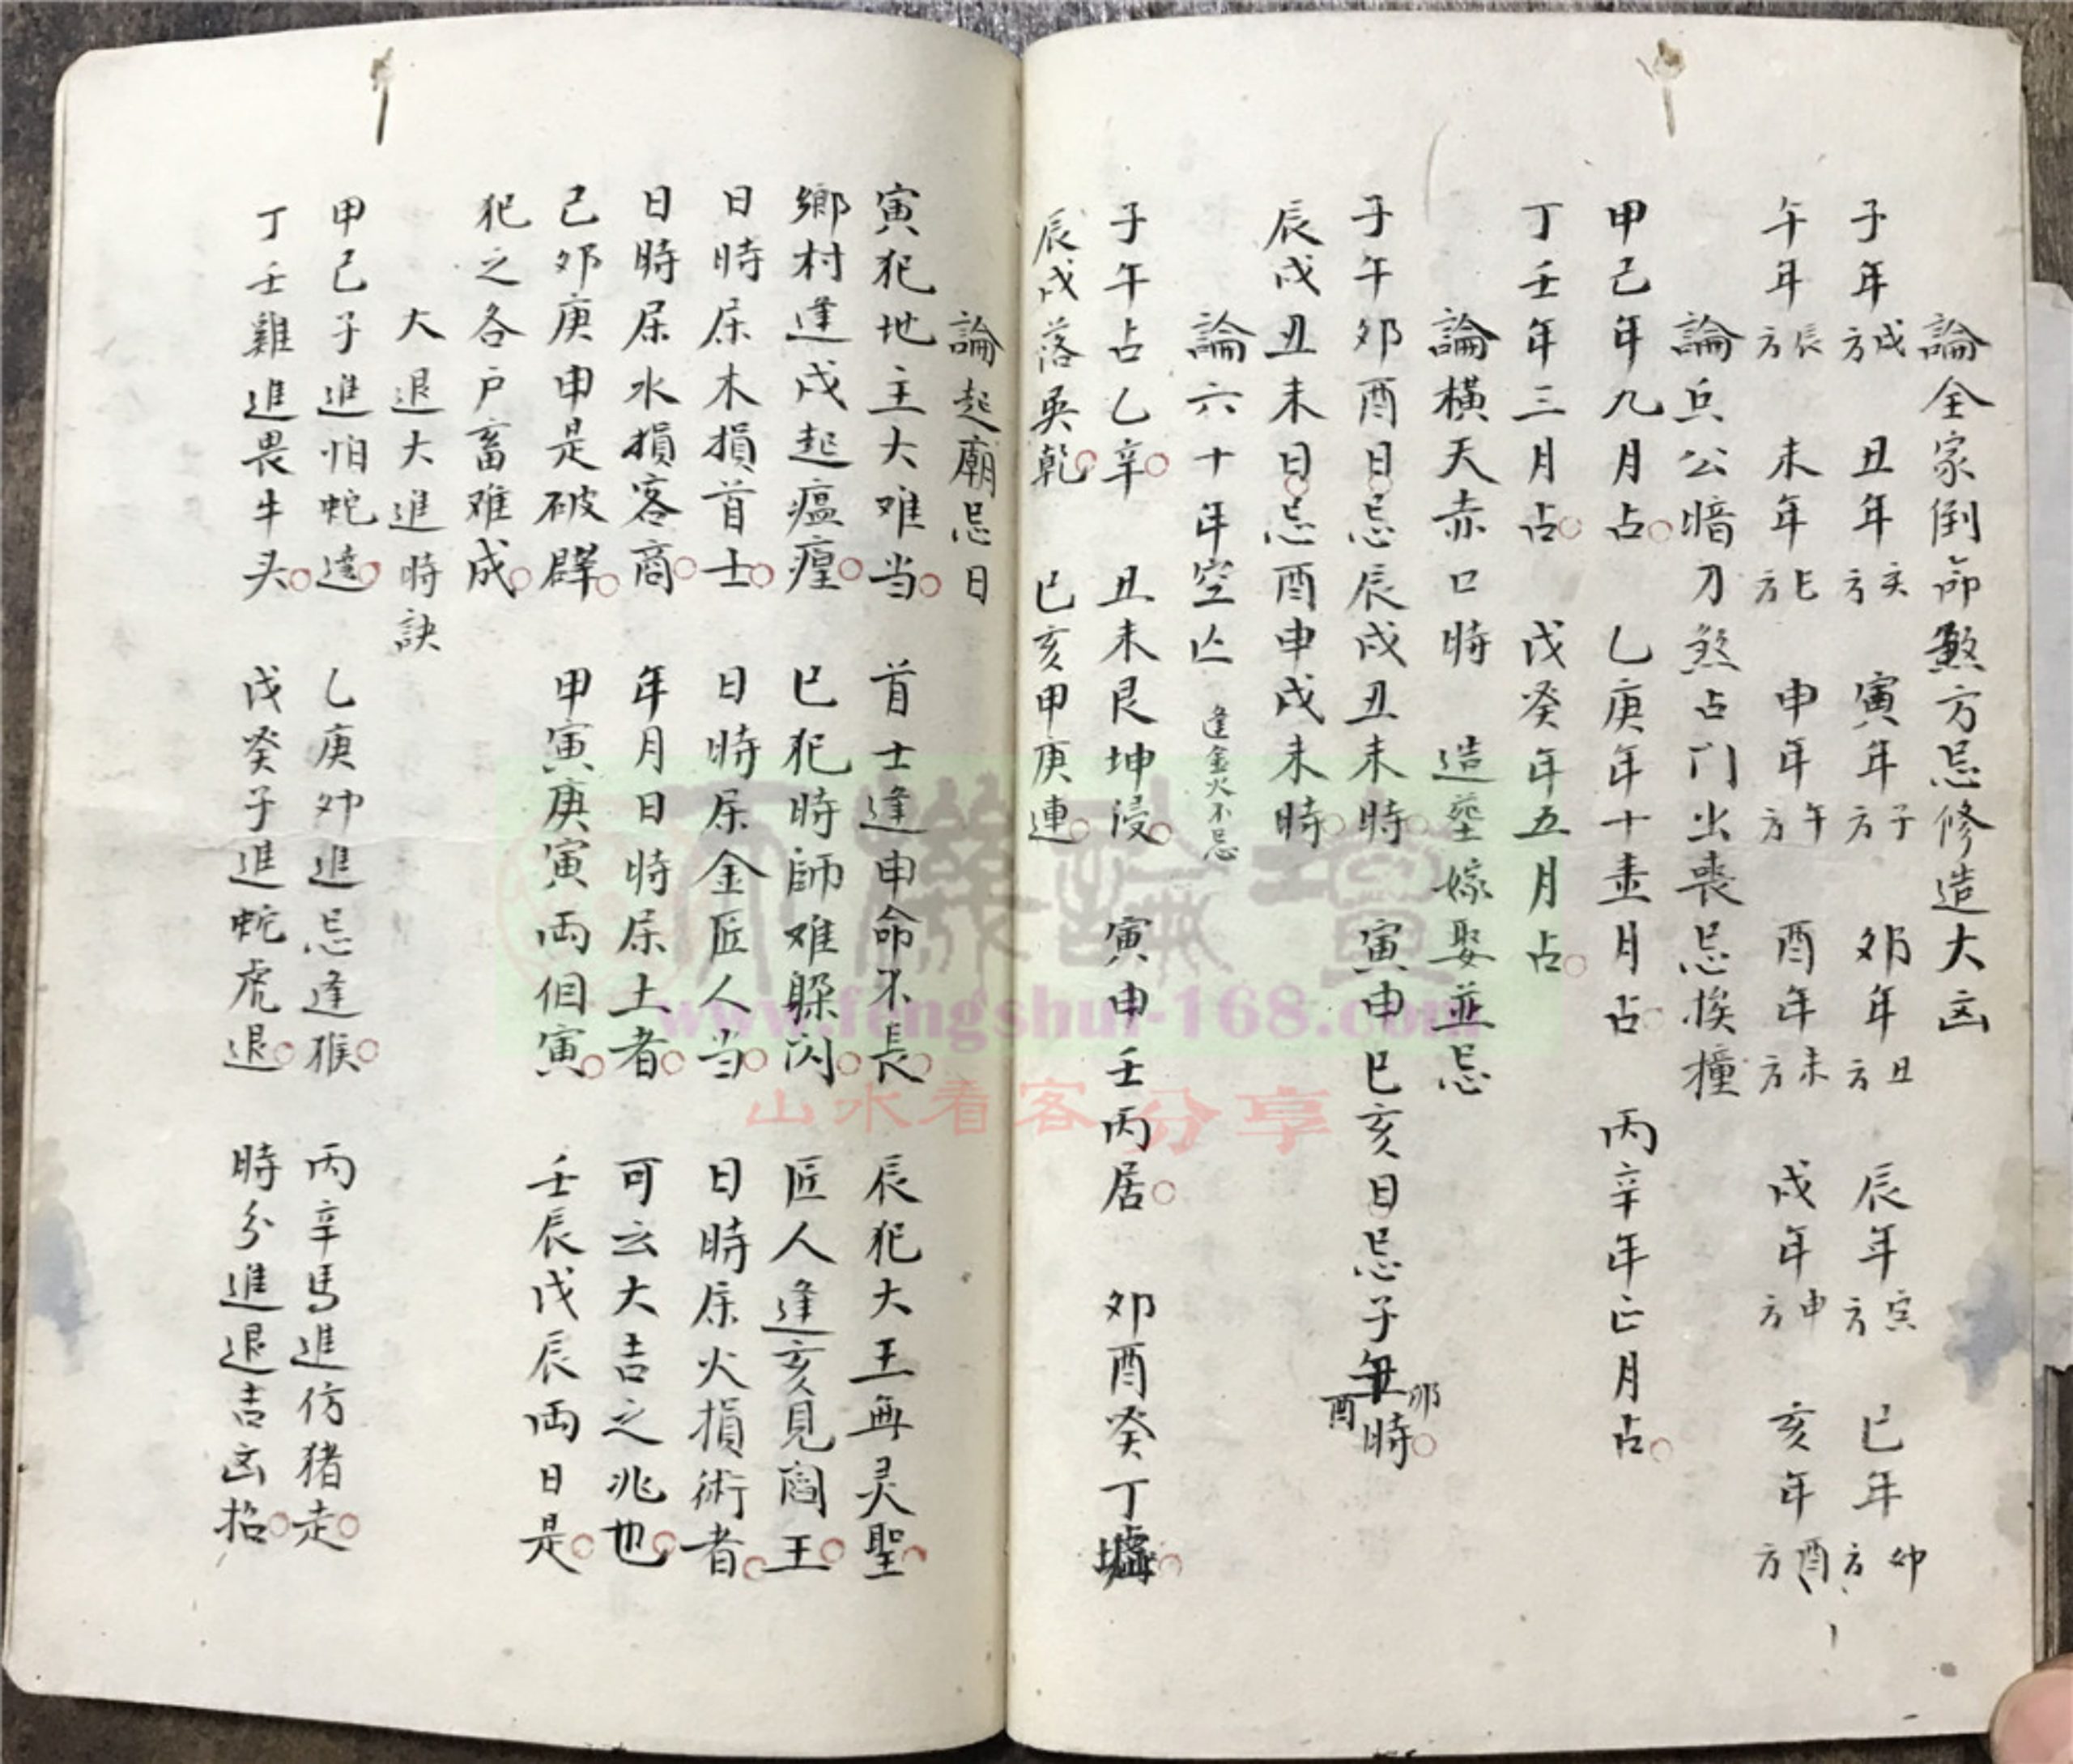 論全家倒命煞方忌修造大凶
子年戌方 丑年亥方 寅年子方 卯年丑方 辰年寅方 巳年卯方
午年辰方 未年巳方 申年午方 酉年未方 戌年申方 亥年酉方
論兵公暗刀煞占门出喪忌挨撞
甲己年九月占 乙庚年十壹月占 丙辛年正月占
丁壬年三月占 戊癸年五月占
論橫天赤口時 造塟嫁娶並忌
子午卯酉日忌辰戌丑未時 寅申巳亥日忌子午卯酉時
辰戌丑未日忌酉申戌未時
論六十年空亡 逢金火不忌
子午占乙辛 丑未艮坤浸 寅申壬丙居 卯酉癸丁墟
辰戌落巽乾 巳亥甲庚連
論起廟忌日
寅犯地主大难当 首士逢申命不長 辰犯大王無灵聖
鄉村逢戌起瘟㾮 巳犯時師难躲闪 匠人逢亥見閻王
日時屎木損首士 日時屎金匠人当 日時屎火損術者
日時屎水損客商 年月日時屎土者 可云大吉之兆也
己卯庚申是破辟 甲寅庚寅両個寅 壬辰戊辰両日是
犯之各户畜难成
大退大進時訣
甲己子進怕蛇逢 乙庚卯進忌逢猴 丙辛馬進仿猪走
丁壬雞進畏牛头 戊癸子進蛇虎退 時分進退吉凶招
天機論壇
www.fengshui-168.com
山水看客分享